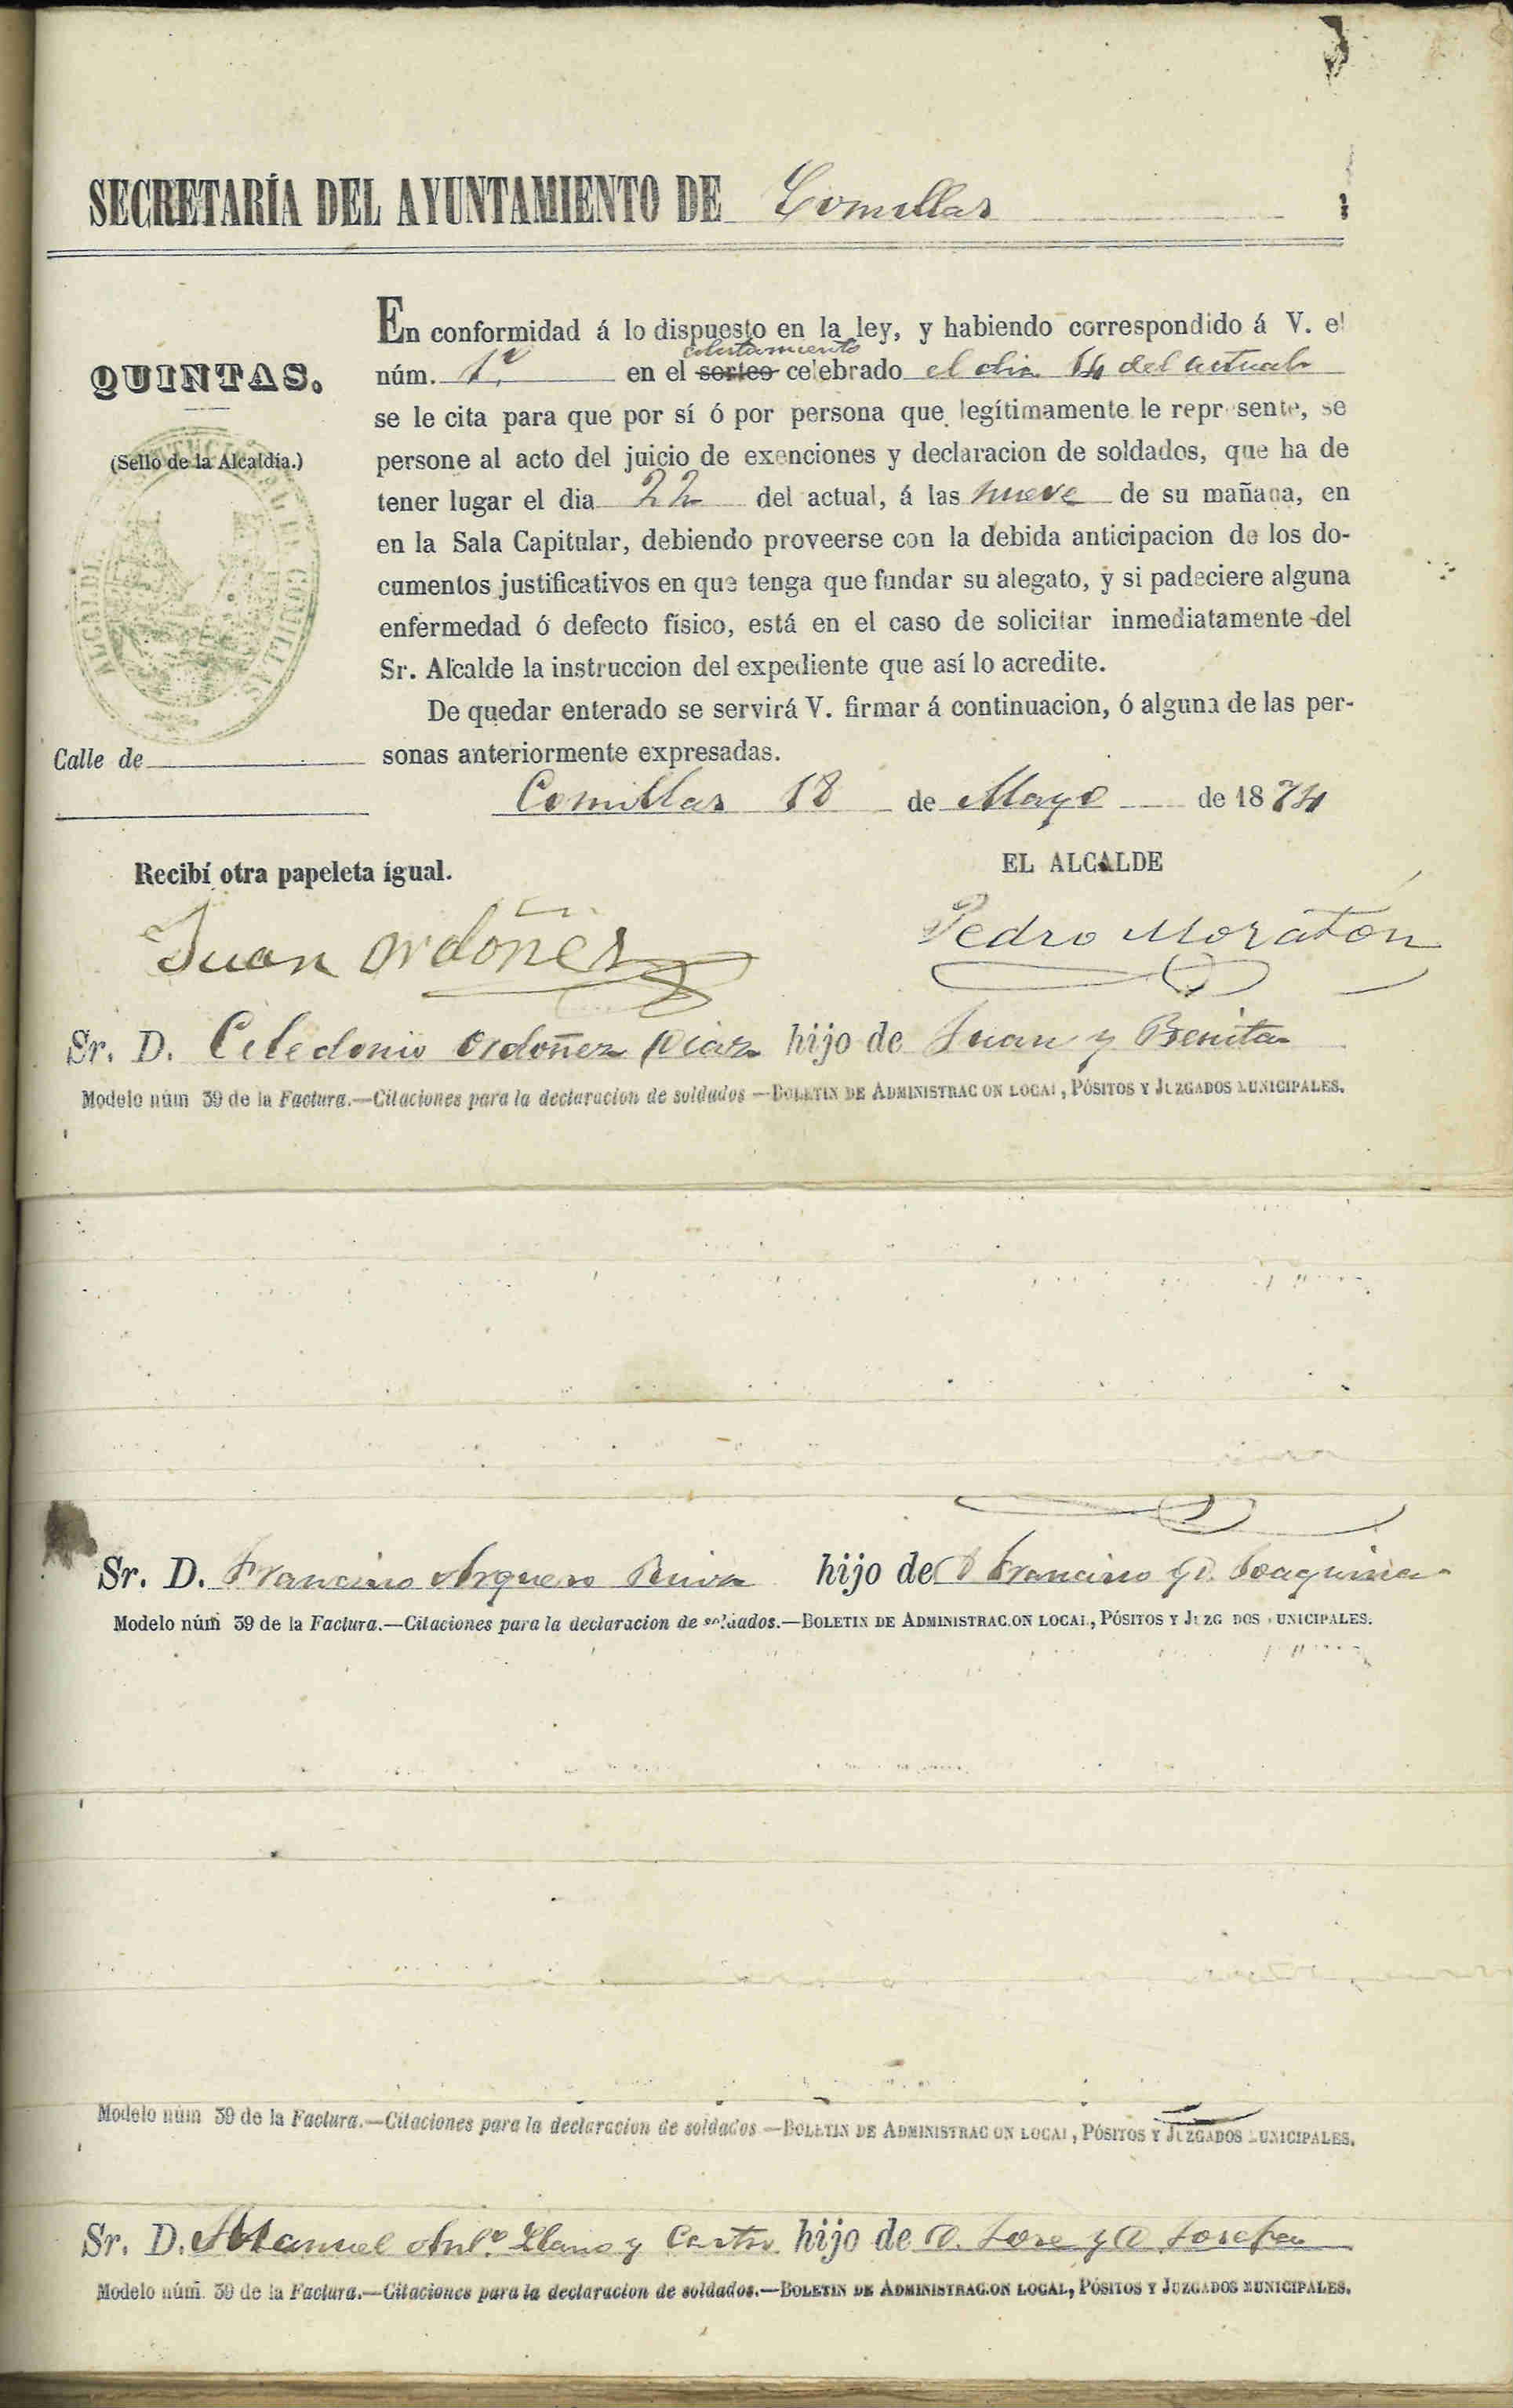 SECRETARÍA DEL AYUNTAMIENTO DE Comillas
QUINTAS.
(Sello de la Alcaldía.)
ALCALDÍA
Calle de
En conformidad á lo dispuesto en la ley, y habiendo correspondido á V. el
alistamiento
núm. 1º en el sorteo celebrado el dia 14 del actual
se le cita para que por sí ó por persona que legítimamente le represente, se
persone al acto del juicio de exenciones y declaracion de soldados, que ha de
tener lugar el dia 22 del actual, á las nueve de su mañana, en
en la Sala Capitular, debiendo proveerse con la debida anticipacion de los do-
cumentos justificativos en que tenga que fundar su alegato, y si padeciere alguna
enfermedad ó defecto físico, está en el caso de solicitar inmediatamente del
Sr. Alcalde la instruccion del expediente que así lo acredite.
De quedar enterado se servirá V. firmar á continuacion, ó alguna de las per-
sonas anteriormente expresadas.
Comillas 18 de Mayo de 1874
Recibí otra papeleta igual.
EL ALCALDE
Juan Ordoñez
Pedro Moratón
Sr. D. Celedonio Ordoñez Diaz hijo de Juan y Benita
Modelo núm 39 de la Factura.—Citaciones para la declaracion de soldados —BOLETIN DE ADMINISTRACION LOCAL, PÓSITOS Y JUZGADOS MUNICIPALES.
Sr. D. Francisco Arguero hijo de D Francisco y D. Joaquina
Modelo núm 39 de la Factura.—Citaciones para la declaracion de soldados.—BOLETIN DE ADMINISTRACION LOCAL, PÓSITOS Y JUZGADOS MUNICIPALES.
Modelo núm 39 de la Factura.—Citaciones para la declaracion de soldados —BOLETIN DE ADMINISTRACION LOCAL, PÓSITOS Y JUZGADOS MUNICIPALES.
Sr. D. Manuel Antº Llano y Castro hijo de D. Jose y D Josefa
Modelo núm. 39 de la Factura.—Citaciones para la declaracion de soldados.—BOLETIN DE ADMINISTRACION LOCAL, PÓSITOS Y JUZGADOS MUNICIPALES.